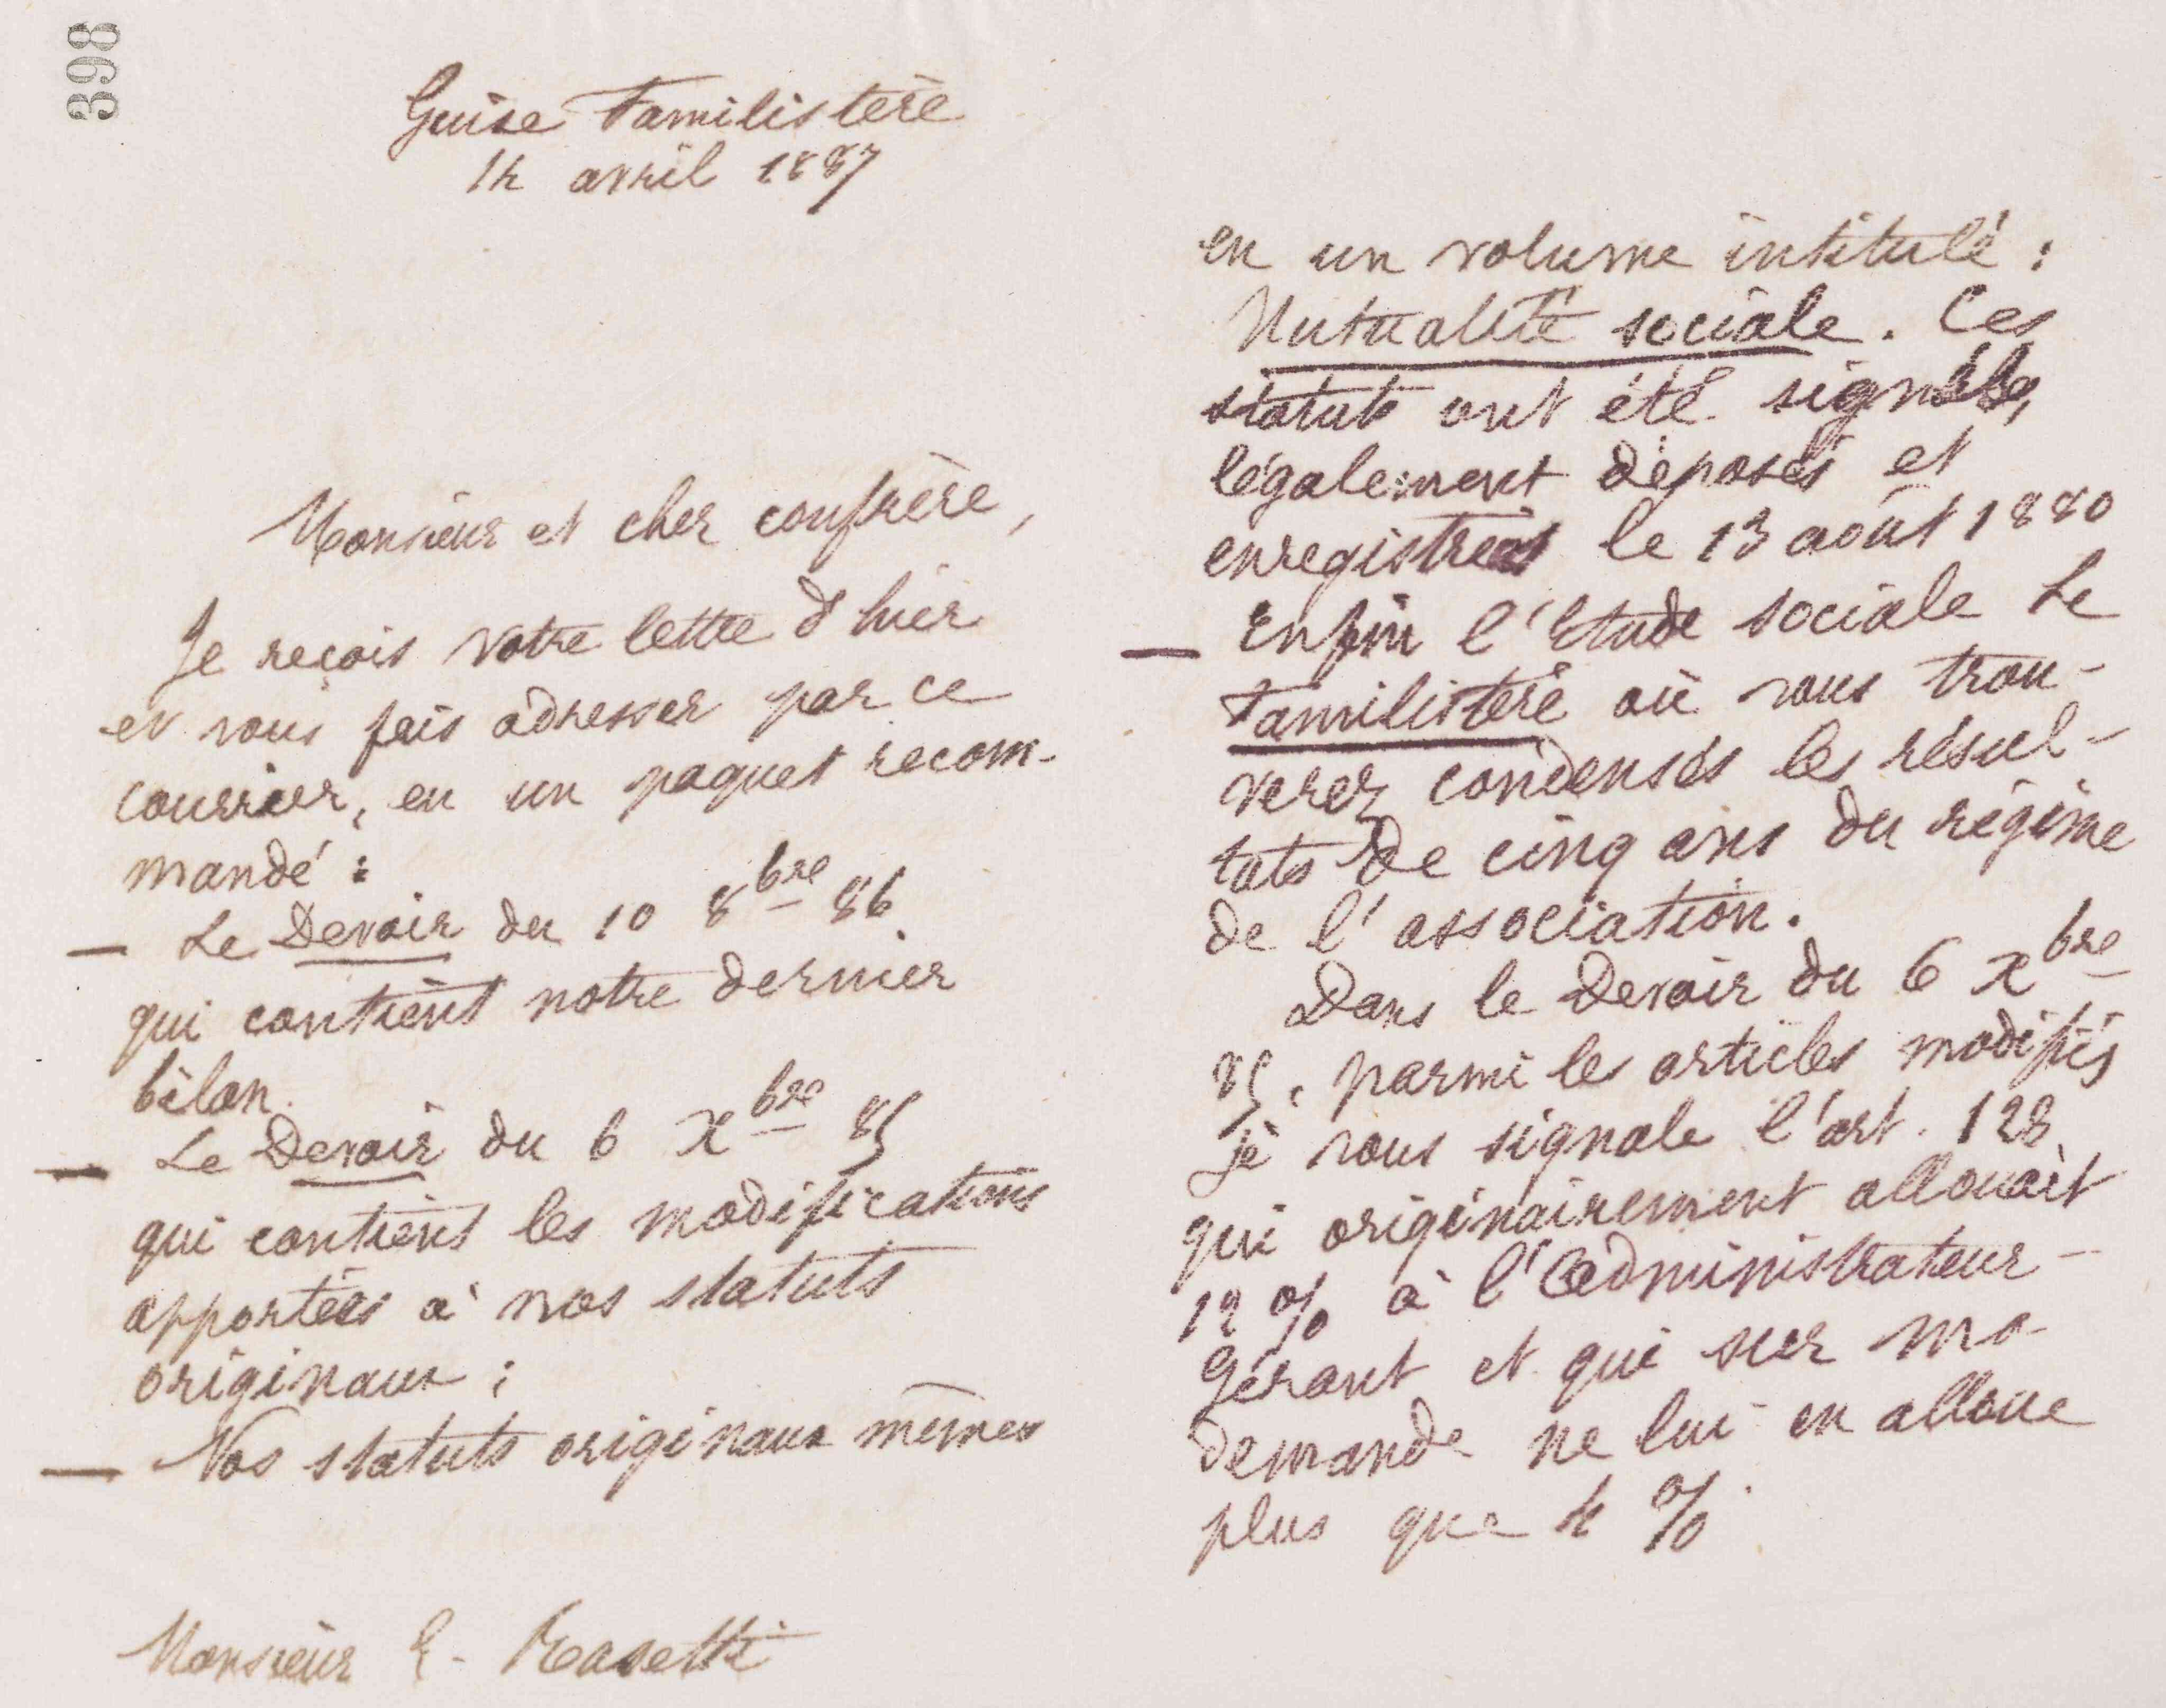 398
Guise Familistère
14 avril 1887
Monsieur et cher confrère,
Je reçois votre lettre d'hier
et vous fais adresser par ce
courrier, en un paquet recom-
mandé :
— Le Devoir du 10 8bre 86
qui contient notre dernier
bilan.
— Le Devoir du 6 Xbre 85
qui contient les modifications
apportées à nos statuts
originaux ;
— Nos statuts originaux mêmes
Monsieur E. Rasetti
en un volume intitulé :
Mutualité sociale. Ces
statuts ont été signés,
légalement déposés et
enregistrés le 13 août 1880
— Enfin l'Etude sociale Le
Familistère où vous trou-
verez condensés les résul-
tats de cinq ans du régime
de l'association.
Dans le Devoir du 6 Xbre
85, parmi les articles modifiés
je vous signale l'art. 128
qui originairement allouait
12 % à l'Administrateur-
Gérant et qui sur ma
demande ne lui en alloue
plus que 4 %.